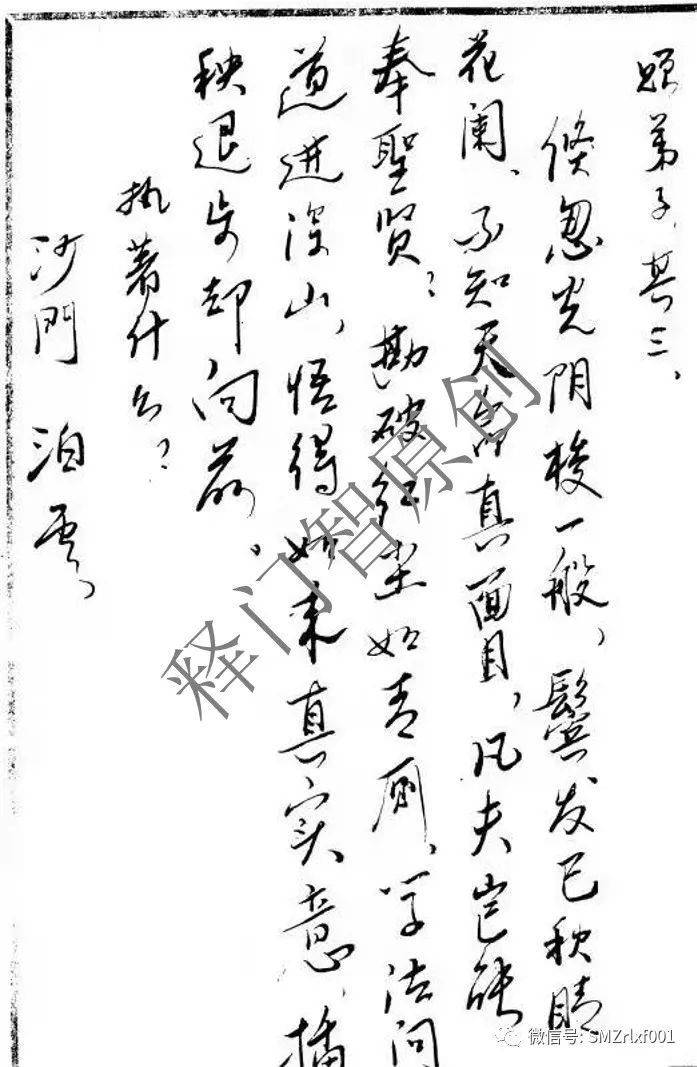 赐弟子其三、
倏忽光阴梭一般，鬓发已秋睛
花阑、不知天命真面目，凡夫岂能
奉聖贤？勘破红尘如青周、学法问
道进深山，悟得如来真实意，插
秧退步却向前。
执著什么？
沙門 泊雲
释门智原创
微信号: SMZrlxf001